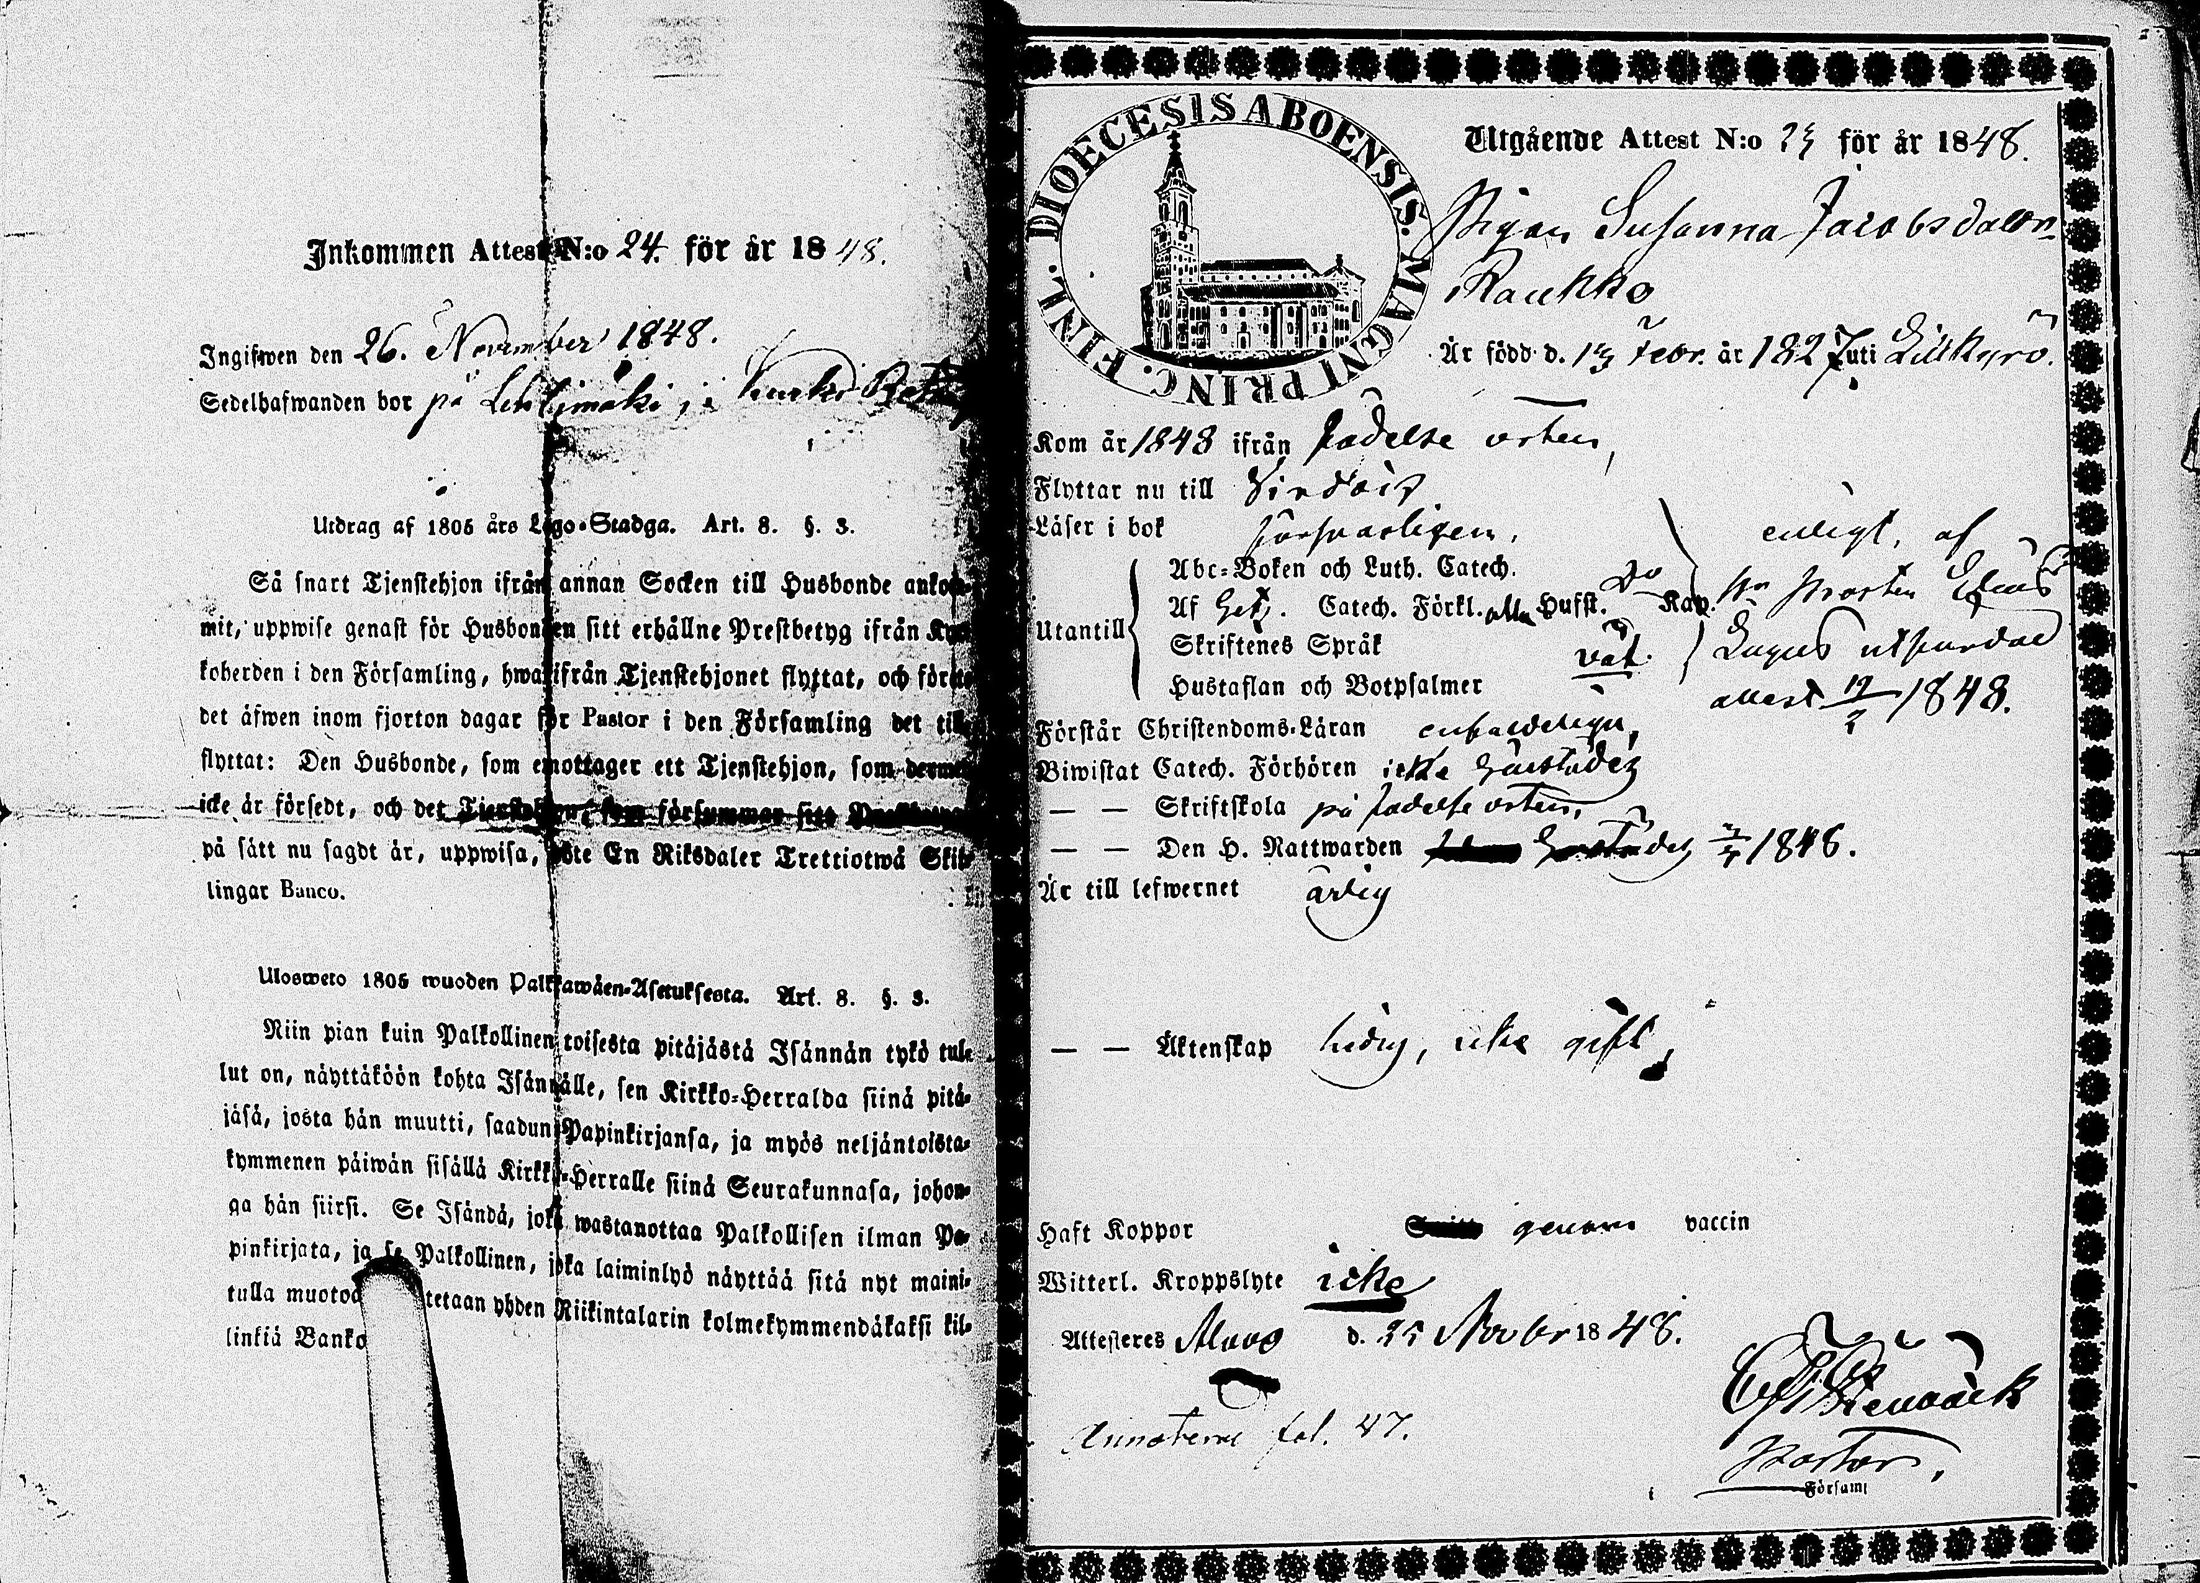 Inkommen Attest N:o 24. för år 1848.
Ingifwen den 26. November 1848.
Sedelhafwanden bor på Lehtimäki
Utdrag af 1805 års Lego-Stadga. Art. 8. §. 3.
Så snart Tjenstehjon ifrån annan Socken till Husbonde ankom-
mit, uppwise genast för Husbonden sitt erhållne Prestbetyg ifrån Kyr-
koherden i den Församling, hwarifrån Tjenstehjonet flyttat, och förete
det äfwen inom fjorton dagar för Pastor i den Församling det till-
flyttat: Den Husbonde, som emottager ett Tjenstehjon, som dermed
icke är försedt, och det Tjenstehjon, som försummar sitt
på sätt nu sagdt är, uppwisa, böte En Riksdaler Trettiotwå Skil-
lingar Banco.
Ulosweto 1805 wuoden Palkkawäen-Asetuksesta. Art. 8. §. 3.
Niin pian kuin Palkollinen toisesta pitäjästä Isännän tykö tul-
lut on, näyttäköön kohta Isännälle, sen Kirkko-Herralda siinä pitä-
jäsä, josta hän muutti, saadun Papinkirjansa, ja myös neljäntoista-
kymmenen päiwän sisällä Kirkko-Herralle siinä Seurakunnasa, johon-
ga hän siirsi. Se Isändä, joka wastanottaa Palkollisen ilman Pa-
pinkirjata, ja se Palkollinen, joka laiminlyö näyttää sitä nyt maini-
tulla muotoa tetaan yhden Riikintalarin kolmekymmendäkaksi kil-
linkiä Banko
DIOECESIS ABOENSIS. MAGNI PRINC. FINL.
Utgående Attest N:o 23 för år 1848.
Pigan Susanna Jacobsdotter
Raukko
Är född d. 13 Febr. år 1827 uti Lillkyrö.
Kom år 1848 ifrån födelse orten,
Flyttar nu till Vindala
Läser i bok försvarligen,
Utantill
Abc-Boken och Luth. Catech.
Af Catech. Förkl. alla Hufst. Do Kap.
Skriftenes Språk väl.
Hustaflan och Botpsalmer
enligt, af
Hr Prosten Elias
Lagus utfärdad
attest 19/2 1848.
Förstår Christendoms-Läran enfaldeligen,
Biwistat Catech. Förhören icke härstädes
— — Skriftskola på födelse orten,
— — Den H. Nattwarden härstädes 1848.
Är till lefwernet ärlig
— — Äktenskap ledig, icke gift,
Haft Koppor genom vaccin
Witterl. Kroppslyte icke
Attesteres Alavo d. 25 Novbr 1848.
Stenbäck
Pastor,
i Församl
Annoterad fol. 47.